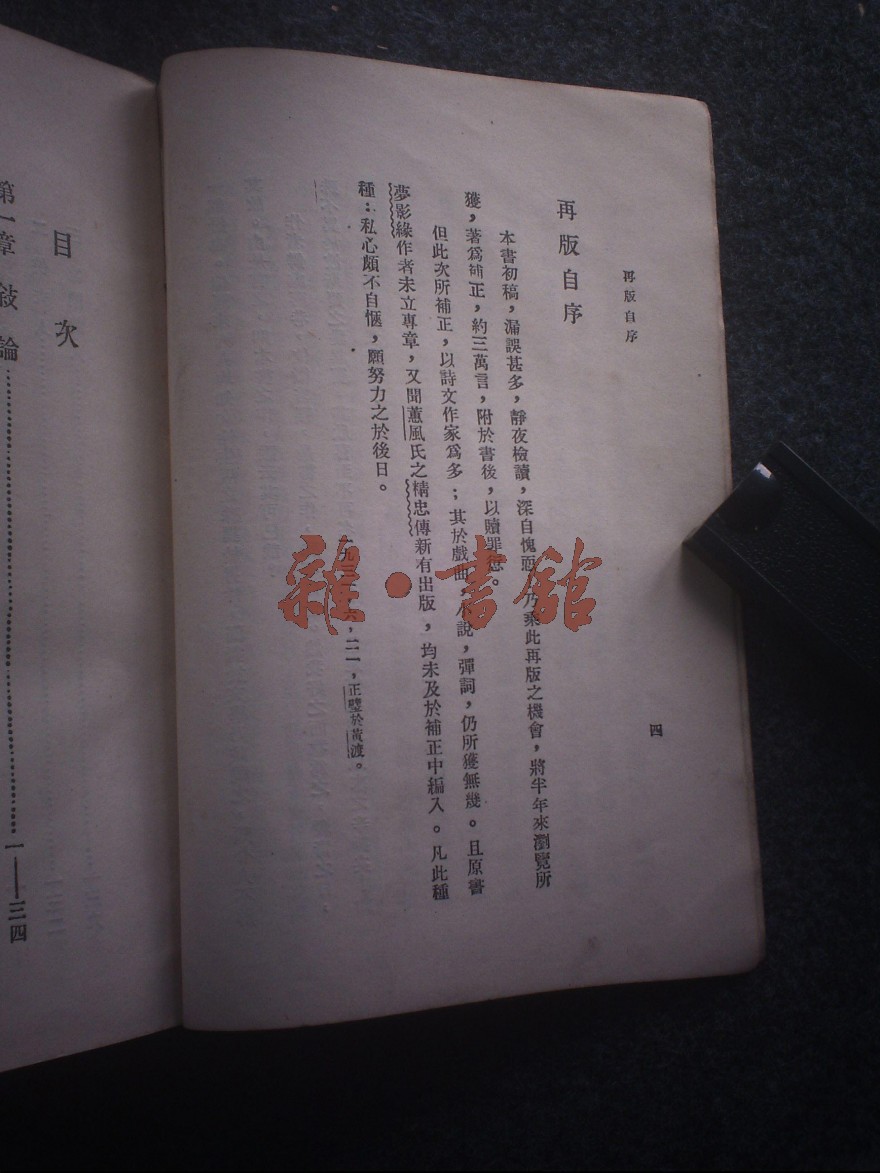 再版自序
四
再版自序
本書初稿，漏誤甚多，靜夜檢讀，深自愧恧，乃乘此再版之機會，將半年來瀏覽所
獲，著爲補正，約三萬言，附於書後，以贖罪愆。
但此次所補正，以詩文作家爲多；其於戲曲，小說，彈詞，仍所獲無幾。且原書
夢影緣作者未立專章，又聞蕙風氏之精忠傳新有出版，均未及於補正中編入。凡此種
種：私心頗不自愜，願努力之於後日。
一九三，二一，正璧於黃渡。
目次
第一章 敍論⋯⋯⋯⋯⋯⋯⋯⋯⋯⋯一——三四
雜·書館